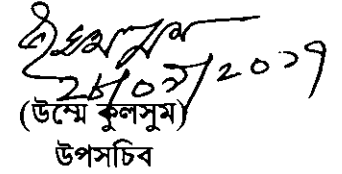 ২৮/০৯/২০১৭
(উম্মে কুলসুম)
উপসচিব